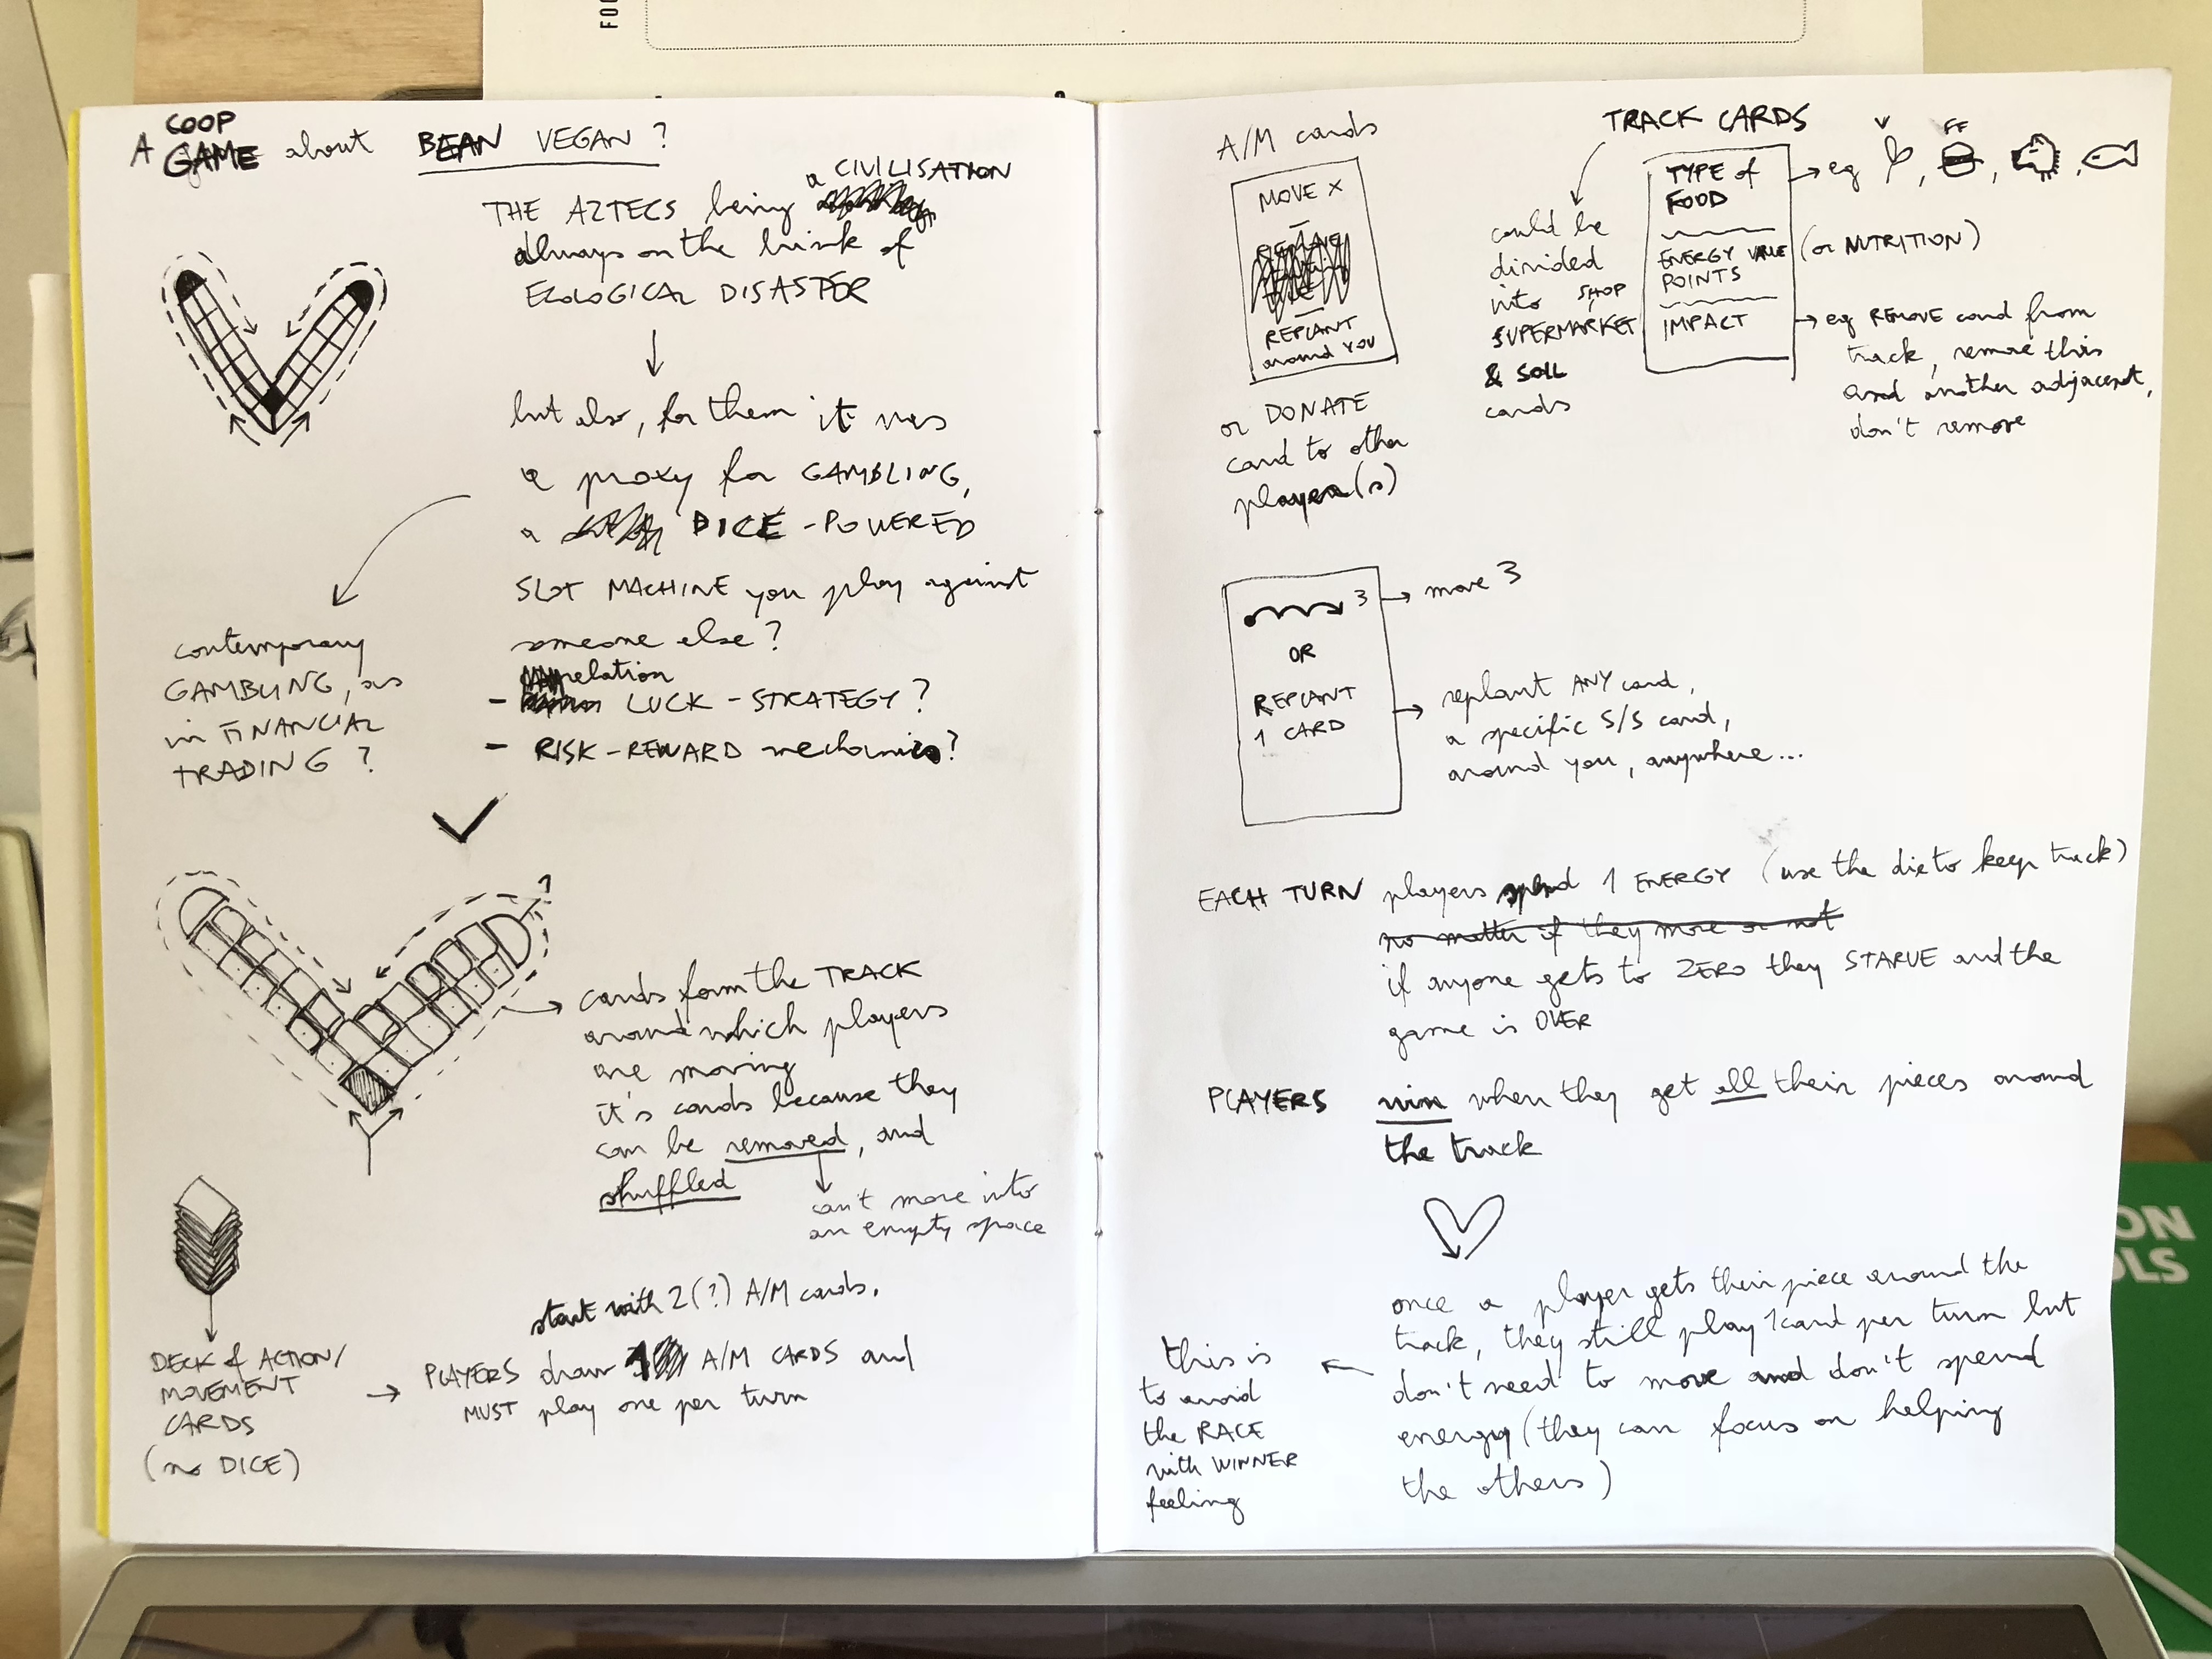 A COOP GAME about BEAN VEGAN?
THE AZTECS being a CIVILISATION
always on the brink of
ECOLOGICAL DISASTER
but also, for them it was
a proxy for GAMBLING,
a DICE-POWERED
SLOT MACHINE you play against
someone else?
- relation LUCK-STRATEGY?
- RISK-REWARD mechanics?
contemporary
GAMBLING, as
in FINANCIAL
TRADING?
?
cards form the TRACK
around which players
are moving
it's cards because they
can be removed, and
shuffled
can't move into
an empty space
DECK of ACTION/
MOVEMENT
CARDS
(no DICE)
start with 2(?) A/M cards.
PLAYERS draw 1 A/M CARDS and
MUST play one per turn
A/M cards
MOVE X
REPLANT
around YOU
or DONATE
card to other
player(s)
TRACK CARDS
could be
divided
into SHOP
SUPERMARKET
& SOIL
cards
TYPE of
FOOD
ENERGY VALUE
POINTS
IMPACT
V
FF
eg , , ,
(or NUTRITION)
eg REMOVE card from
track, remove this
and another adjacent,
don't remove
3
OR
REPLANT
1 CARD
move 3
replant ANY card,
a specific S/S card,
around you, anywhere...
EACH TURN players spend 1 ENERGY (use the die to keep track)
no matter if they move or not
if anyone gets to ZERO they STARVE and the
game is OVER
PLAYERS win when they get all their pieces around
the track
once a player gets their piece around the
track, they still play 1 card per turn but
don't need to move and don't spend
energy (they can focus on helping
the others)
this is
to avoid
the RACE
with WINNER
feeling
FO
ON
OLS